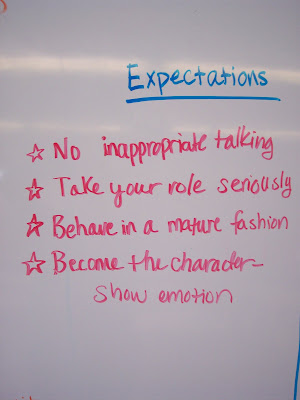 Expectations
☆ No inappropriate talking
☆ Take your role seriously
☆ Behave in a mature fashion
☆ Become the character-
show emotion